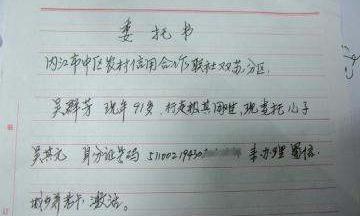 委托书
内江市中区农村信用合作联社双苏分区.
吴群芳 现年91岁. 行走极其困难, 现委托儿子
吴其元 身份证号码 5110021943 来办理 蜀信.
城乡养老卡激活。